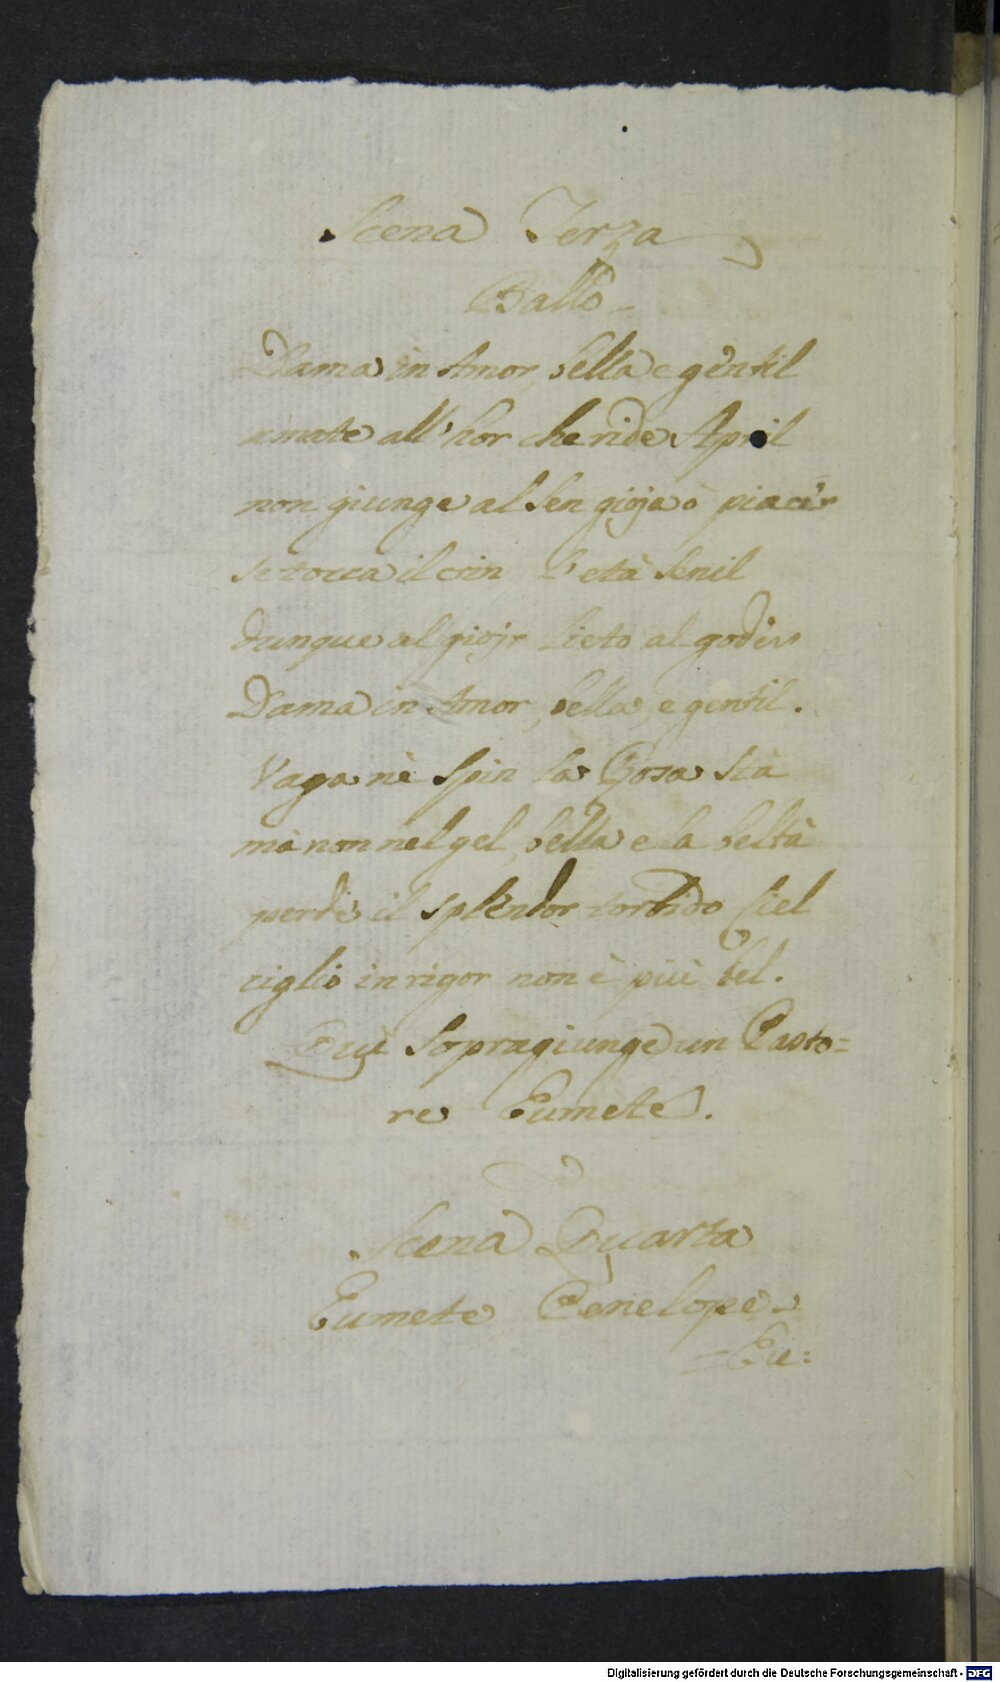 Scena Terza
Ballo
Dama in Amor, bella e gentil
amate all'hor che ride April
non giunge al sen gioja ò piacer
se tocca il crin l'età senil
dunque al gioir lieto al goder
Dama in Amor, bella, e gentil.
Vaga nè spin la Rosa stà
mà non nel gel bella e la beltà
perde il splendor torbido Ciel
ciglio in rigor non è più bel.
Quì sopragiunge un Pasto=
re Eumete.
Scena Quarta
Eumete Penelope.
=Eu=
Digitalisierung gefördert durch die Deutsche Forschungsgemeinschaft - DFG